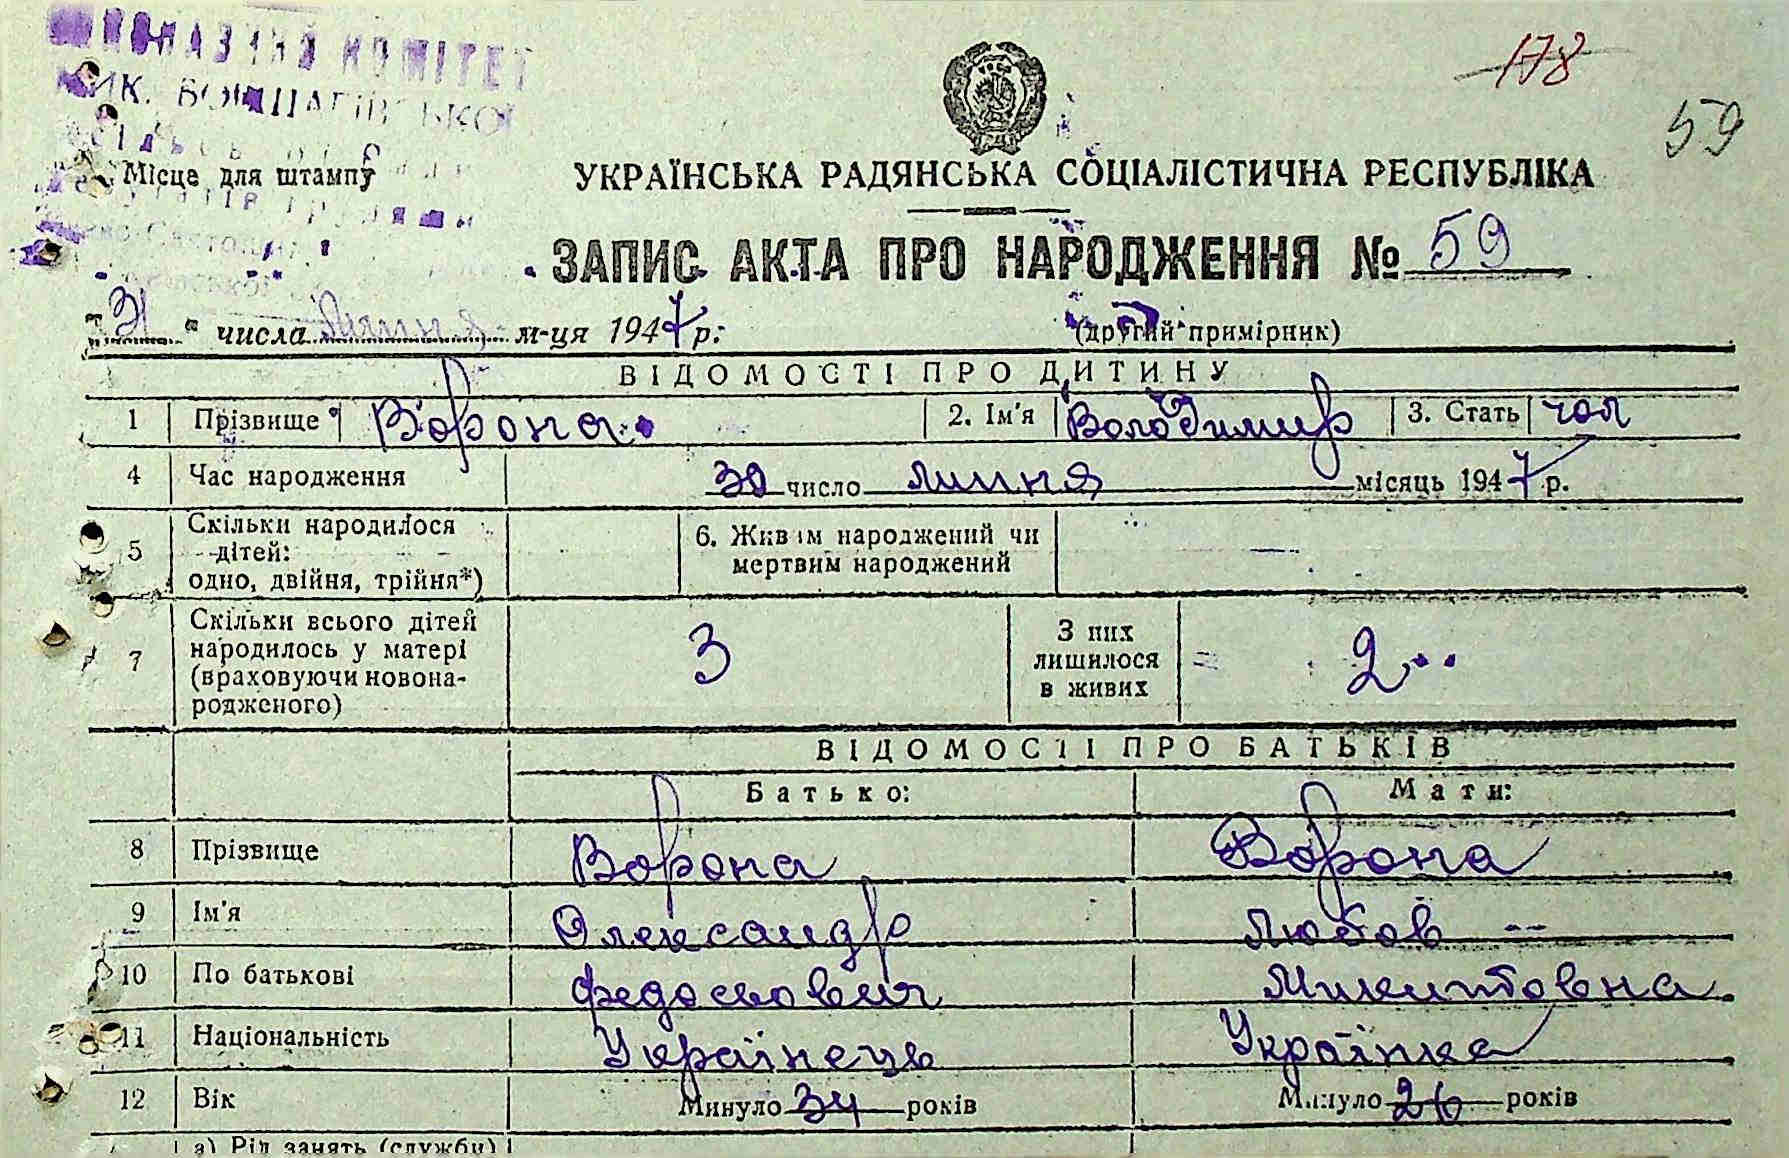 178
59
ВИКОНАВЧИЙ КОМІТЕТ
Місце для штампу
УКРАЇНСЬКА РАДЯНСЬКА СОЦІАЛІСТИЧНА РЕСПУБЛІКА
ЗАПИС АКТА ПРО НАРОДЖЕННЯ № 59
"31" числа Липня м-ця 1947 р.
(другий примірник)
ВІДОМОСТІ ПРО ДИТИНУ
1 Прізвище Ворона 2. Ім'я Володимир 3. Стать чол
4 Час народження 30 число липня місяць 1947 р.
5 Скільки народилося дітей: одно, двійня, трійня*) 6. Живим народжений чи мертвим народжений —
7 Скільки всього дітей народилось у матері (враховуючи новонародженого) 3 З них лишилося в живих 2
ВІДОМОСТІ ПРО БАТЬКІВ
Батько: Мати:
8 Прізвище Ворона Ворона
9 Ім'я Олександр Любов
10 По батькові Федосьович Микитовна
11 Національність Українець Українка
12 Вік Минуло 34 років Минуло 26 років
а) Рід занять (служби)